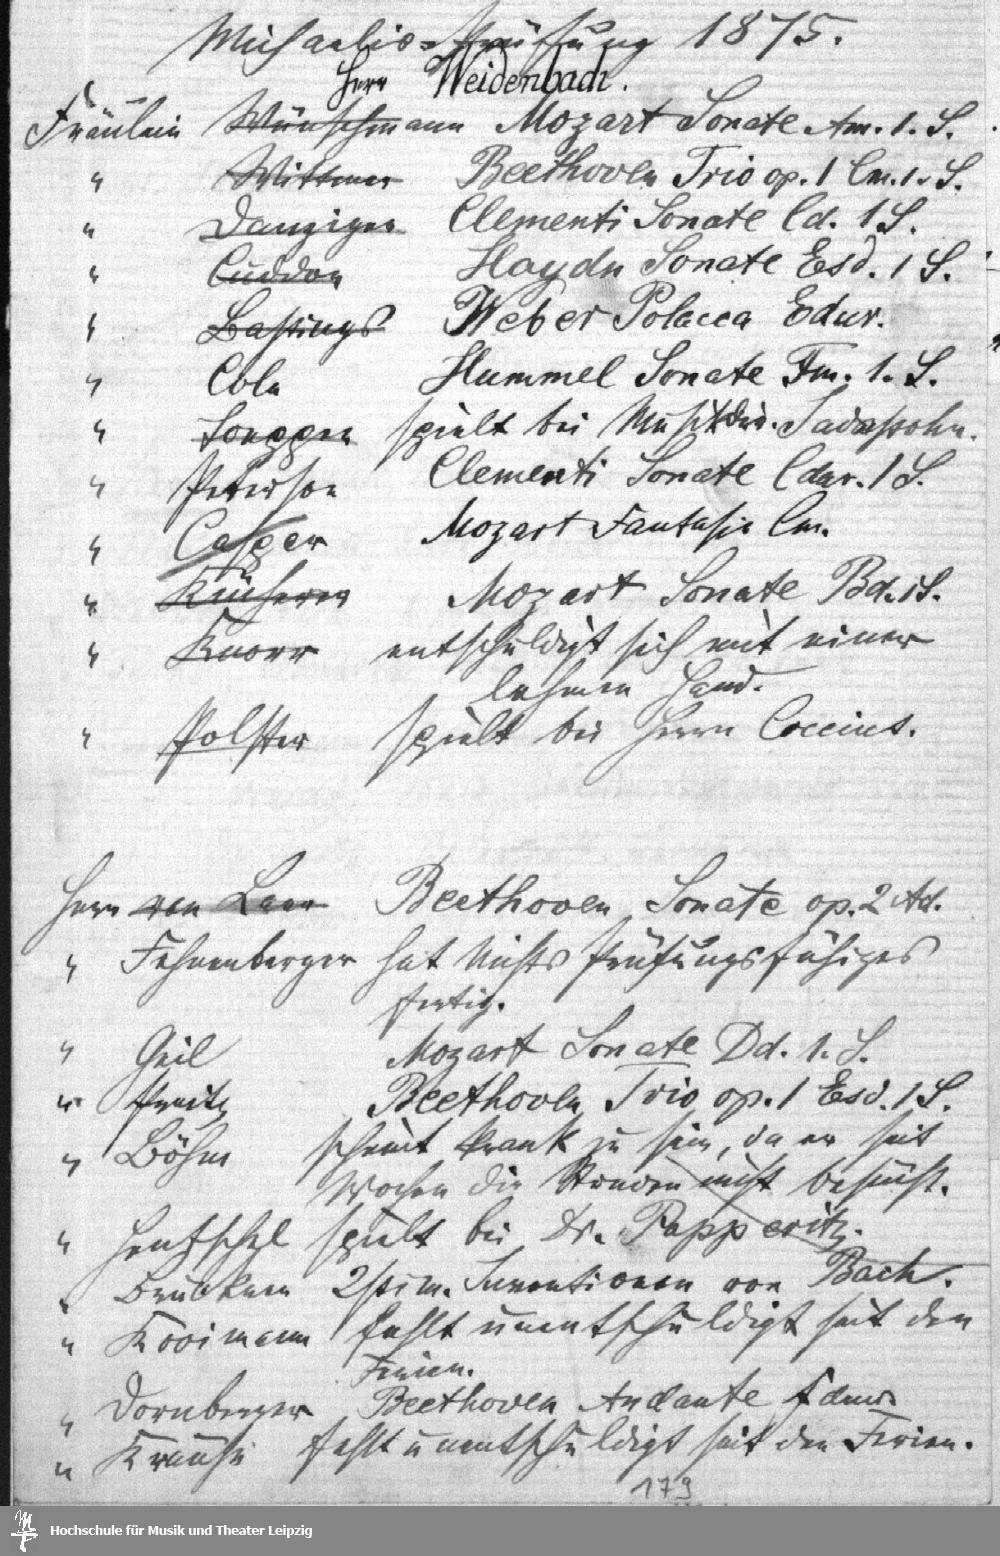 Michaelis-Prüfung 1875.
Herr Weidenbach.
Fräulein Wünschmann Mozart Sonate Am. 1. S.
" Wittmer Beethoven Trio op. 1 Cm. 1. S.
" Danziger Clementi Sonate Cd. 1 S.
" Cuddon Haydn Sonate Esd. 1 S.
" Bastings Weber Polacca Edur.
" Cole Hummel Sonate Fm. 1. S.
" spielt bei Musikdir. Jadassohn.
" Peterson Clementi Sonate Cdur. 1 S.
" Casper Mozart Fantasie Cm.
" Mozart Sonate Bd. 1 S.
" Knorr entschuldigt sich mit einer
lahmen Hand.
" Polster spielt bei Herrn Coccius.
Herr von Laer Beethoven Sonate op. 2 Ad.
" Fehrenberger hat Nichts Prüfungsfähiges
fertig.
" Geil Mozart Sonate Dd. 1. S.
" Preitz Beethoven Trio op. 1 Esd. 1 S.
" Böhm scheint krank zu sein, da er seit
Wochen die Stunden nicht besucht.
" Hentschel spielt bei Dr. Papperitz.
" Brückner 2stim. Inventionen von Bach.
" Kooimann fehlt unentschuldigt seit den
Ferien.
" Dornberger Beethoven Andante Fdur.
" Krause fehlt unentschuldigt seit den Ferien.
179
Hochschule für Musik und Theater Leipzig